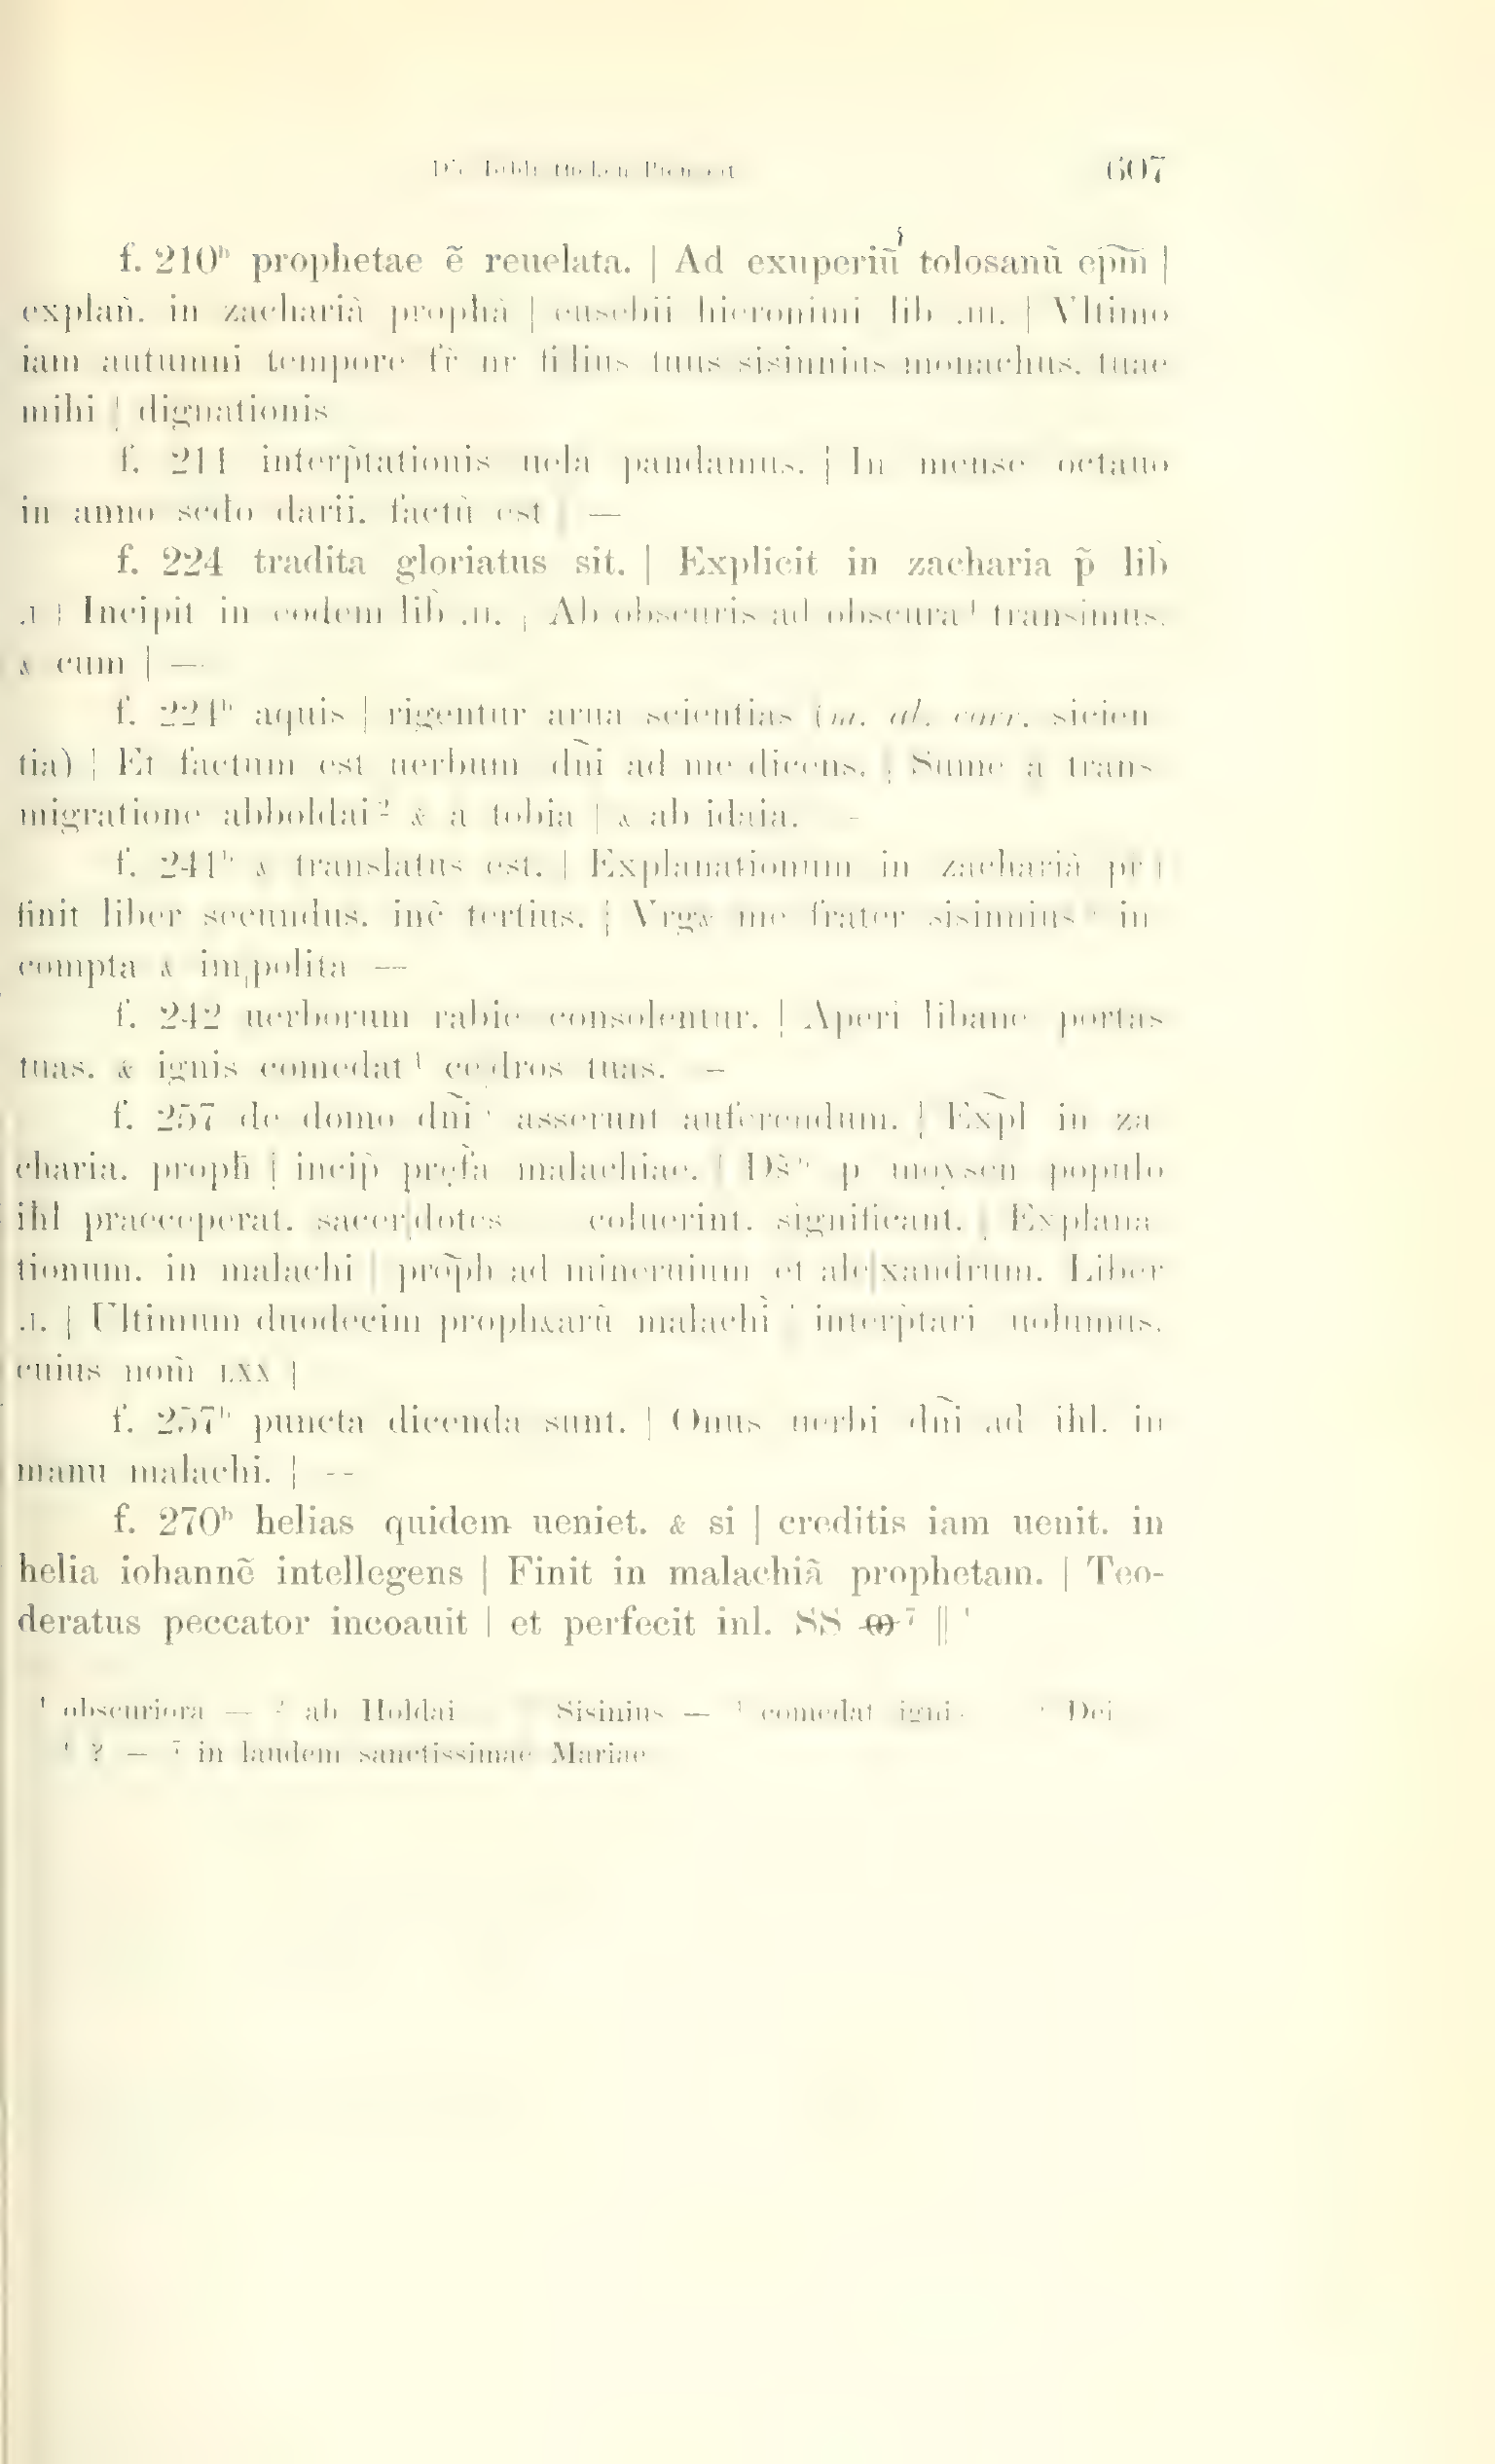 Die Bibliotheken Piemont 607
f. 210ᵇ prophetae ẽ reuelata. | Ad exuperiū tolosanū ep̄m |
explan̄. in zachariā prophā | eusebii hieronimi lib .III. | Vltimo
iam autumni tempore fr̄ nr̄ filius tuus sisinnius monachus. tuae
mihi | dignationis
f. 211 interp̄tationis uela pandamus. | In mense octauo
in anno sc̄do darii. factū est | —
f. 224 tradita gloriatus sit. | Explicit in zacharia p̃ lib̄
.I | Incipit in eodem lib̄ .II. | Ab obscuris ad obscura¹ transimus.
& cum | —
f. 224ᵇ aquis | rigentur arua scientias (m. al. corr. sicien
tia) | Et factum est uerbum dn̄i ad me dicens. | Sume a trans
migratione abboldai² & a tobia | & ab idaia. -
f. 241ᵇ & translatus est. | Explanationum in zachariā pr |
finit liber secundus. inc̄ tertius. | Vrg& me frater sisinnius in
compta & im|polita —
f. 242 uerborum rabie consolentur. | Aperi libane portas
tuas. & ignis comedat⁴ ce|dros tuas. –
f. 257 de domo dn̄i⁵ asserunt auferendum. | Exp̄l in za
charia. proph̄ | incip̄ pręf̄a malachiae. | Ds̄⁶ p moysen populo
ih̄l praeceperat. sacer|dotes coluerint. significant. | Explana
tionum. in malachi | prop̄h ad mineruium et ale|xandrum. Liber
.I. | Ultimum duodecim proph&arū malachī interp̄tari uolumus.
cuius nom̄ LXX |
f. 257ᵇ puncta dicenda sunt. | Onus uerbi dn̄i ad ihl. in
manu malachi. | --
f. 270ᵇ helias quidem ueniet. & si | creditis iam uenit. in
helia iohannẽ intellegens | Finit in malachiā prophetam. | Teo-
deratus peccator incoauit | et perfecit inl. SS ⁷ ||
¹ obscuriora — ² ab Holdai Sisinius — ⁴ comedat ignis ⁵ Dei
⁶ ? — ⁷ in laudem sanctissimae Mariae